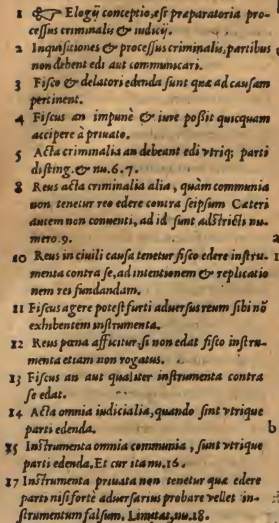 1 ☞ Elogij conceptio, est præparatoria pro-
cessus criminalis & iudicij.
2 Inquisitiones & processus criminalis, partibus
non debent edi aut communicari.
3 Fisco & delatori edenda sunt quæ ad causam
pertinent.
4 Fiscus an impunè & iure possit quicquam
accipere à priuato.
5 Acta criminalia an debeant edi vtriq; parti
disting. & nu. 6. 7.
8 Reus acta criminalia alia, quàm communia
non tenetur reo edere contra seipsum Cæteri
autem non conuenti, ad id sunt adstricti nu-
mero. 9.
10 Reus in ciuili causa tenetur fisco edere instru-
menta contra se, ad intentionem & replicatio
nem rei fundandam.
11 Fiscus agere potest furti aduersus reum sibi nõ
exhibentem instrumenta.
12 Reus pœna afficitur, si non edat fisco instru-
menta etiam non rogatus.
13 Fiscus an aut qualiter instrumenta contra
se edat.
14 Acta omnia iudicialia, quando sint vtrique
parti edenda.
b
15 Instrumenta omnia communia, sunt vtrique
parti edenda. Et cur ita nu. 16.
17 Instrumenta priuata non tenetur quæ edere
parti nisi fortè aduersarius probare vellet in-
strumentum falsum. Limita, nu. 18.